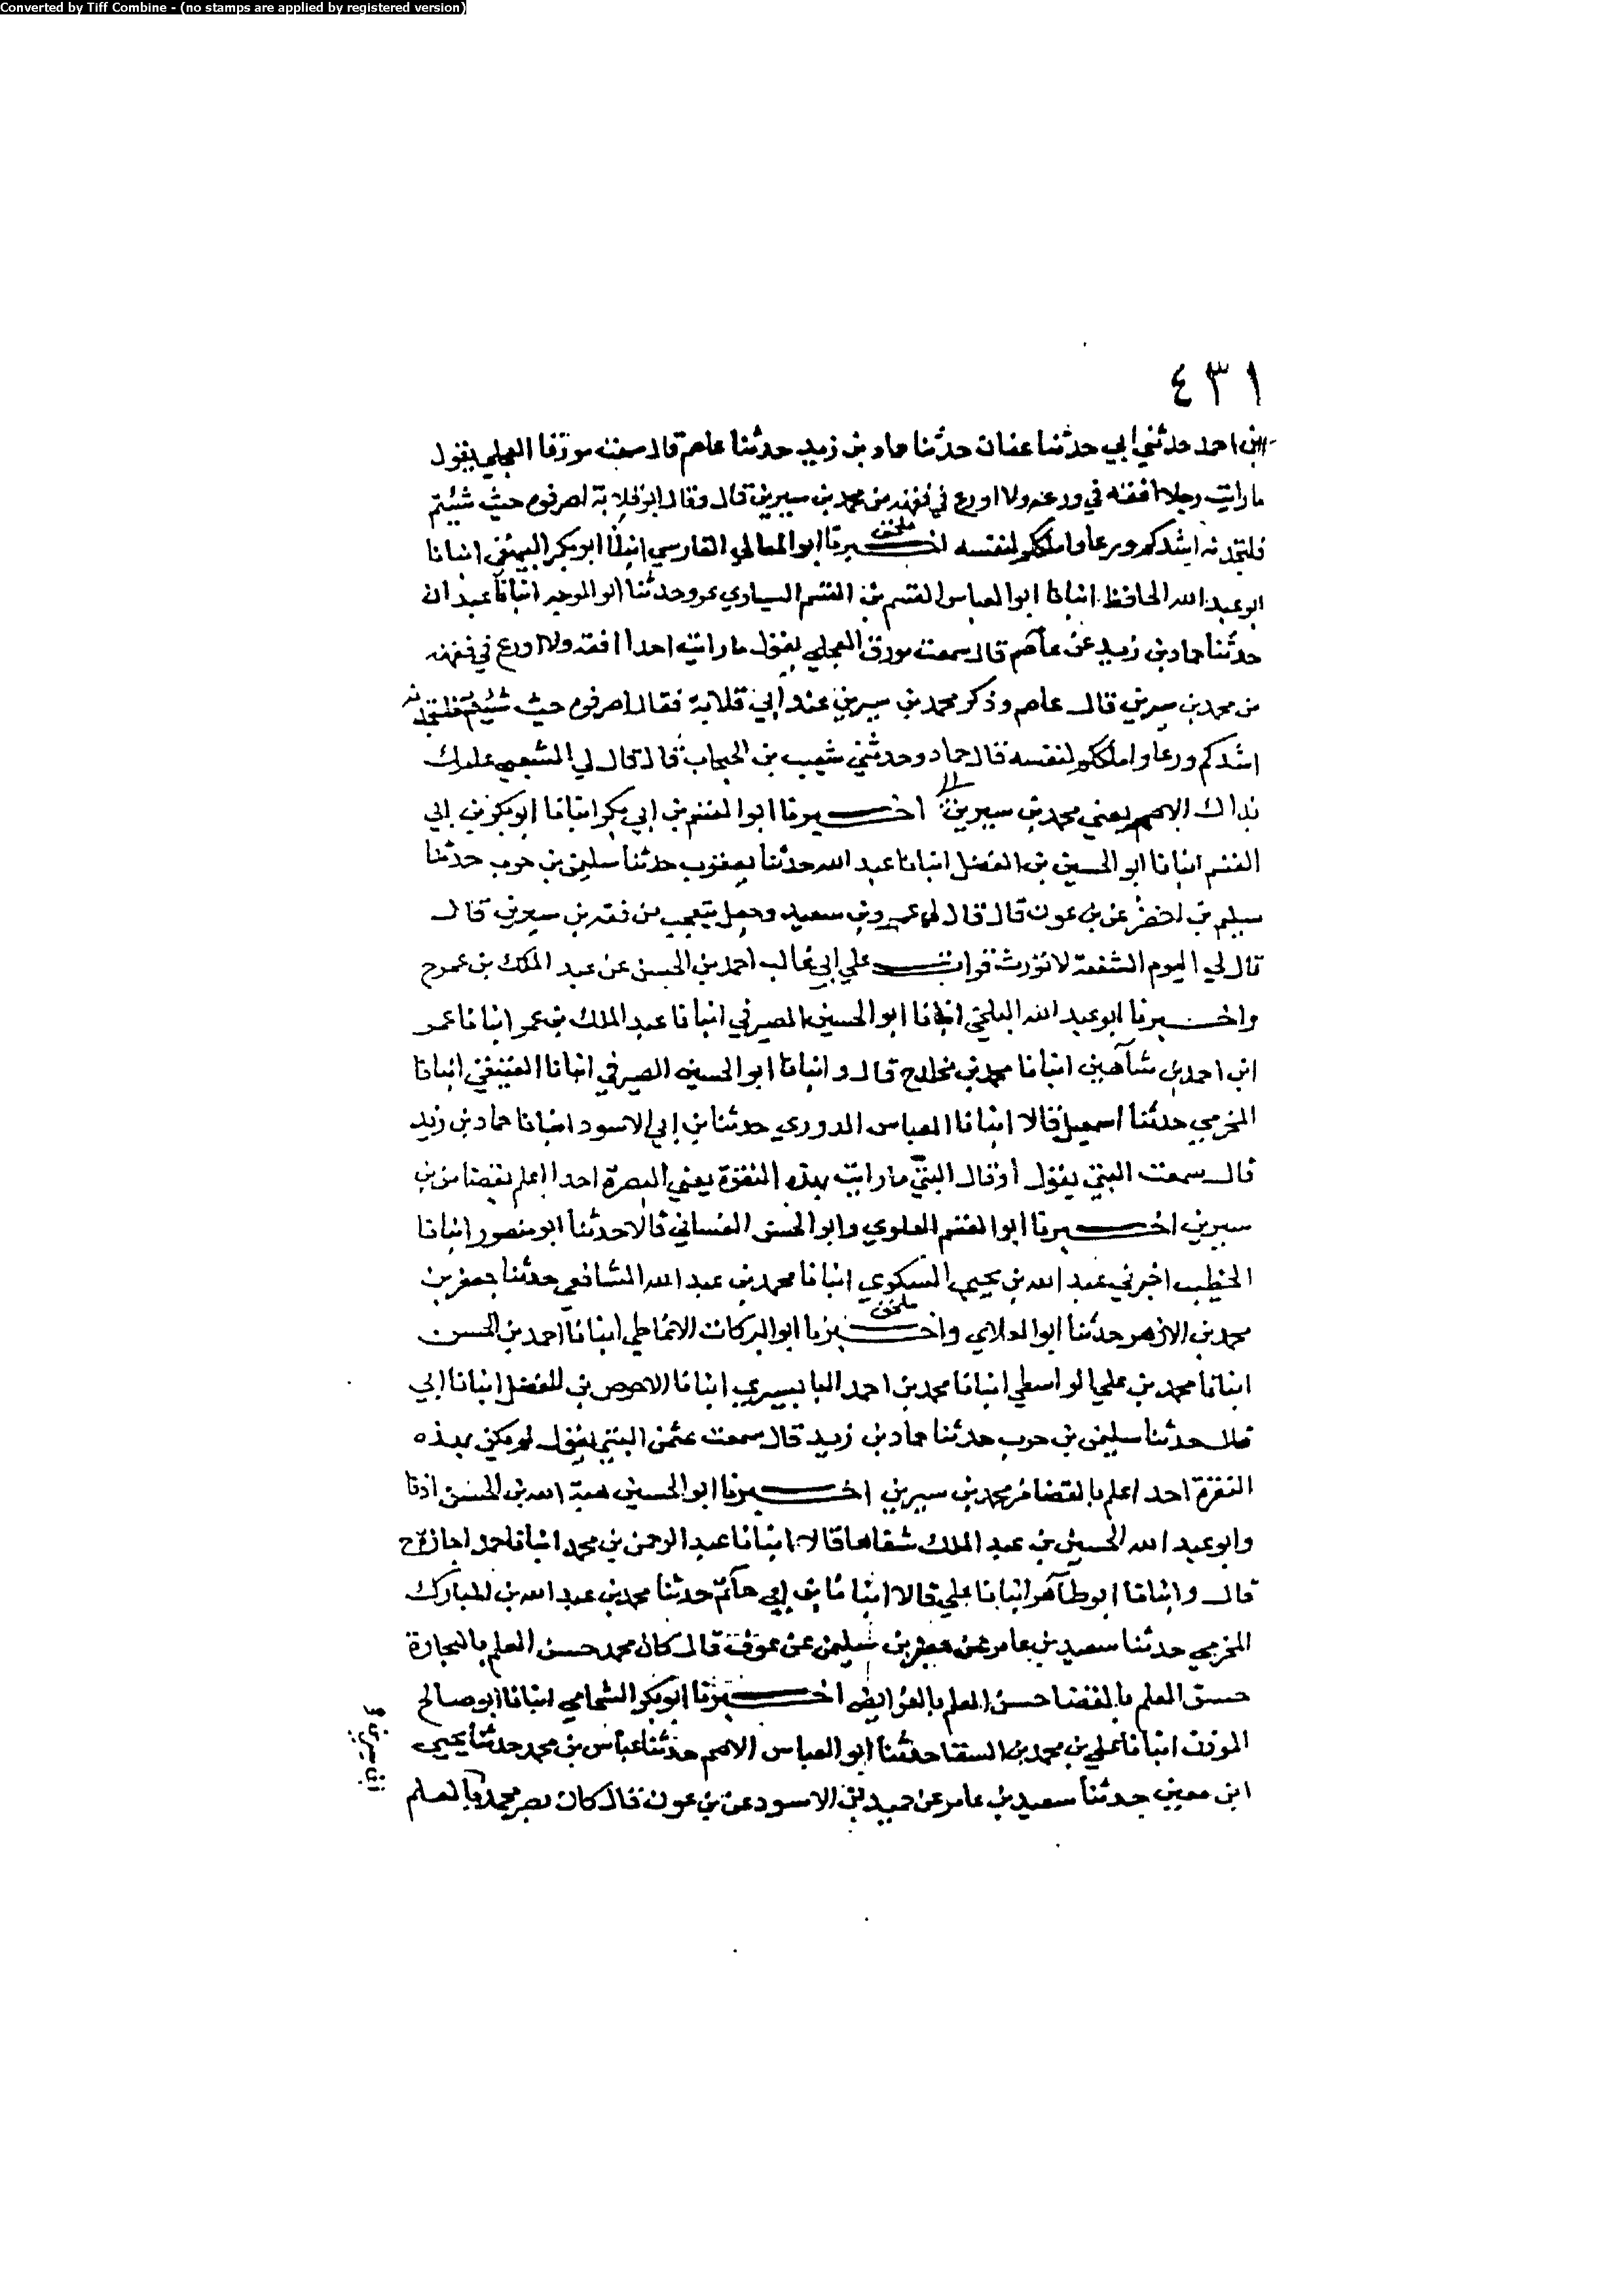 Converted by Tiff Combine - (no stamps are applied by registered version)
٤٣١
ابن احمد حدثني ابي حدثنا عفان حدثنا حماد بن زيد حدثنا عاصم قال سمعت مورقا العجلي يقول
ما رايت رجلا افقه في ورعه ولا اورع في فقهه من محمد بن سيرين قال وقال ابو قلابة اصرفوه حيث شئتم
فلتجدنه اشدكم ورعا واملككم لنفسه اخبرنا ابو المعالي الفارسي انبانا ابو بكر البيهقي انبانا
ملحق
ابو عبد الله الحافظ انبانا ابو العباس القسم بن القسم السياري بمرو حدثنا ابو الموجه انبانا عبدان
حدثنا حماد بن زيد عن عاصم قال سمعت مورق العجلي يقول ما رايت احدا افقه ولا اورع في فقهه
من محمد بن سيرين قال عاصم وذكر محمد بن سيرين عند ابي قلابة فقال اصرفوه حيث شئتم فلتجدنه
اشدكم ورعا واملككم لنفسه قال حماد وحدثني شعيب بن الحبحاب قال قال لي الشعبي عليك
بذاك الاصم يعني محمد بن سيرين اخبرنا ابو القسم بن ابي بكر انبانا ابو بكر بن ابي
القسم انبانا ابو الحسين بن الفضل انبانا عبد الله حدثنا يعقوب حدثنا سليمن بن حرب حدثنا
سليم بن اخضر عن بن عون قال قال لي عمرو بن سعيد وجعل يتعجب من فقه بن سيرين قال
قال لي اليوم الشفعة لا تورث قرات علي ابي غالب احمد بن الحسن عن عبد الملك بن عمر ح
واخبرنا ابو عبد الله البلخي انبانا ابو الحسين الصيرفي انبانا عبد الملك بن عمر انبانا عمر
ابن احمد بن شاهين انبانا محمد بن مخلد ح قال وانبانا ابو الحسين الصيرفي انبانا العتيقي انبانا
المخرمي حدثنا اسمعيل قالا انبانا العباس الدوري حدثنا بن ابي الاسود انبانا حماد بن زيد
قال سمعت البتي يقول او قال البتي ما رايت بهذه النقرة يعني البصرة احدا اعلم بقضا من بن
سيرين اخبرنا ابو القسم العلوي وابو الحسن الغساني قالا حدثنا ابو منصور انبانا
الخطيب اخبرني عبد الله بن يحيى السكري انبانا محمد بن عبد الله الشافعي حدثنا جعفر بن
محمد بن الازهر حدثنا ابو العلاي واخبرنا ابو البركات الانماطي انبانا احمد بن الحسن
ملحق
انبانا محمد بن علي الواسطي انبانا محمد بن احمد البابسيري انبانا الاحوص بن المفضل انبانا ابي
قال حدثنا سليمن بن حرب حدثنا حماد بن زيد قال سمعت عثمن البتي يقول لم يكن بهذه
النقرة احد اعلم بالقضا من محمد بن سيرين اخبرنا ابو الحسين هبة الله بن الحسن اذنا
وابو عبد الله الحسين بن عبد الملك شفاها قالا انبانا عبد الرحمن بن محمد انبانا حمد اجازة ح
قال وانبانا ابو طاهر انبانا علي قالا انبانا بن ابي حاتم حدثنا محمد بن عبد الله بن المبارك
المخرمي حدثنا سعيد بن عامر عن جعفر بن سليمن عن عوف قال كان محمد حسن العلم بالتجارة
حسن العلم بالقضا حسن العلم بالفرايض اخبرنا ابو بكر الشحامي انبانا ابو صالح
الموذن انبانا علي بن محمد بن السقا حدثنا ابو العباس الاصم حدثنا عباس بن محمد حدثنا يحيى
ابن معين حدثنا سعيد بن عامر عن حميد بن الاسود عن بن عون قال كان بصر محمد بالعلم
ابن سيرين